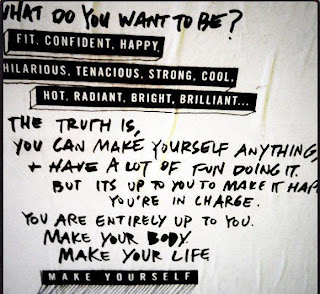 WHAT DO YOU WANT TO BE?
FIT, CONFIDENT, HAPPY,
HILARIOUS, TENACIOUS, STRONG, COOL,
HOT, RADIANT, BRIGHT, BRILLIANT...
THE TRUTH IS,
YOU CAN MAKE YOURSELF ANYTHING,
+ HAVE A LOT OF FUN DOING IT.
BUT ITS UP TO YOU TO MAKE IT HAP
YOU'RE IN CHARGE.
YOU ARE ENTIRELY UP TO YOU.
MAKE YOUR BODY.
MAKE YOUR LIFE
MAKE YOURSELF